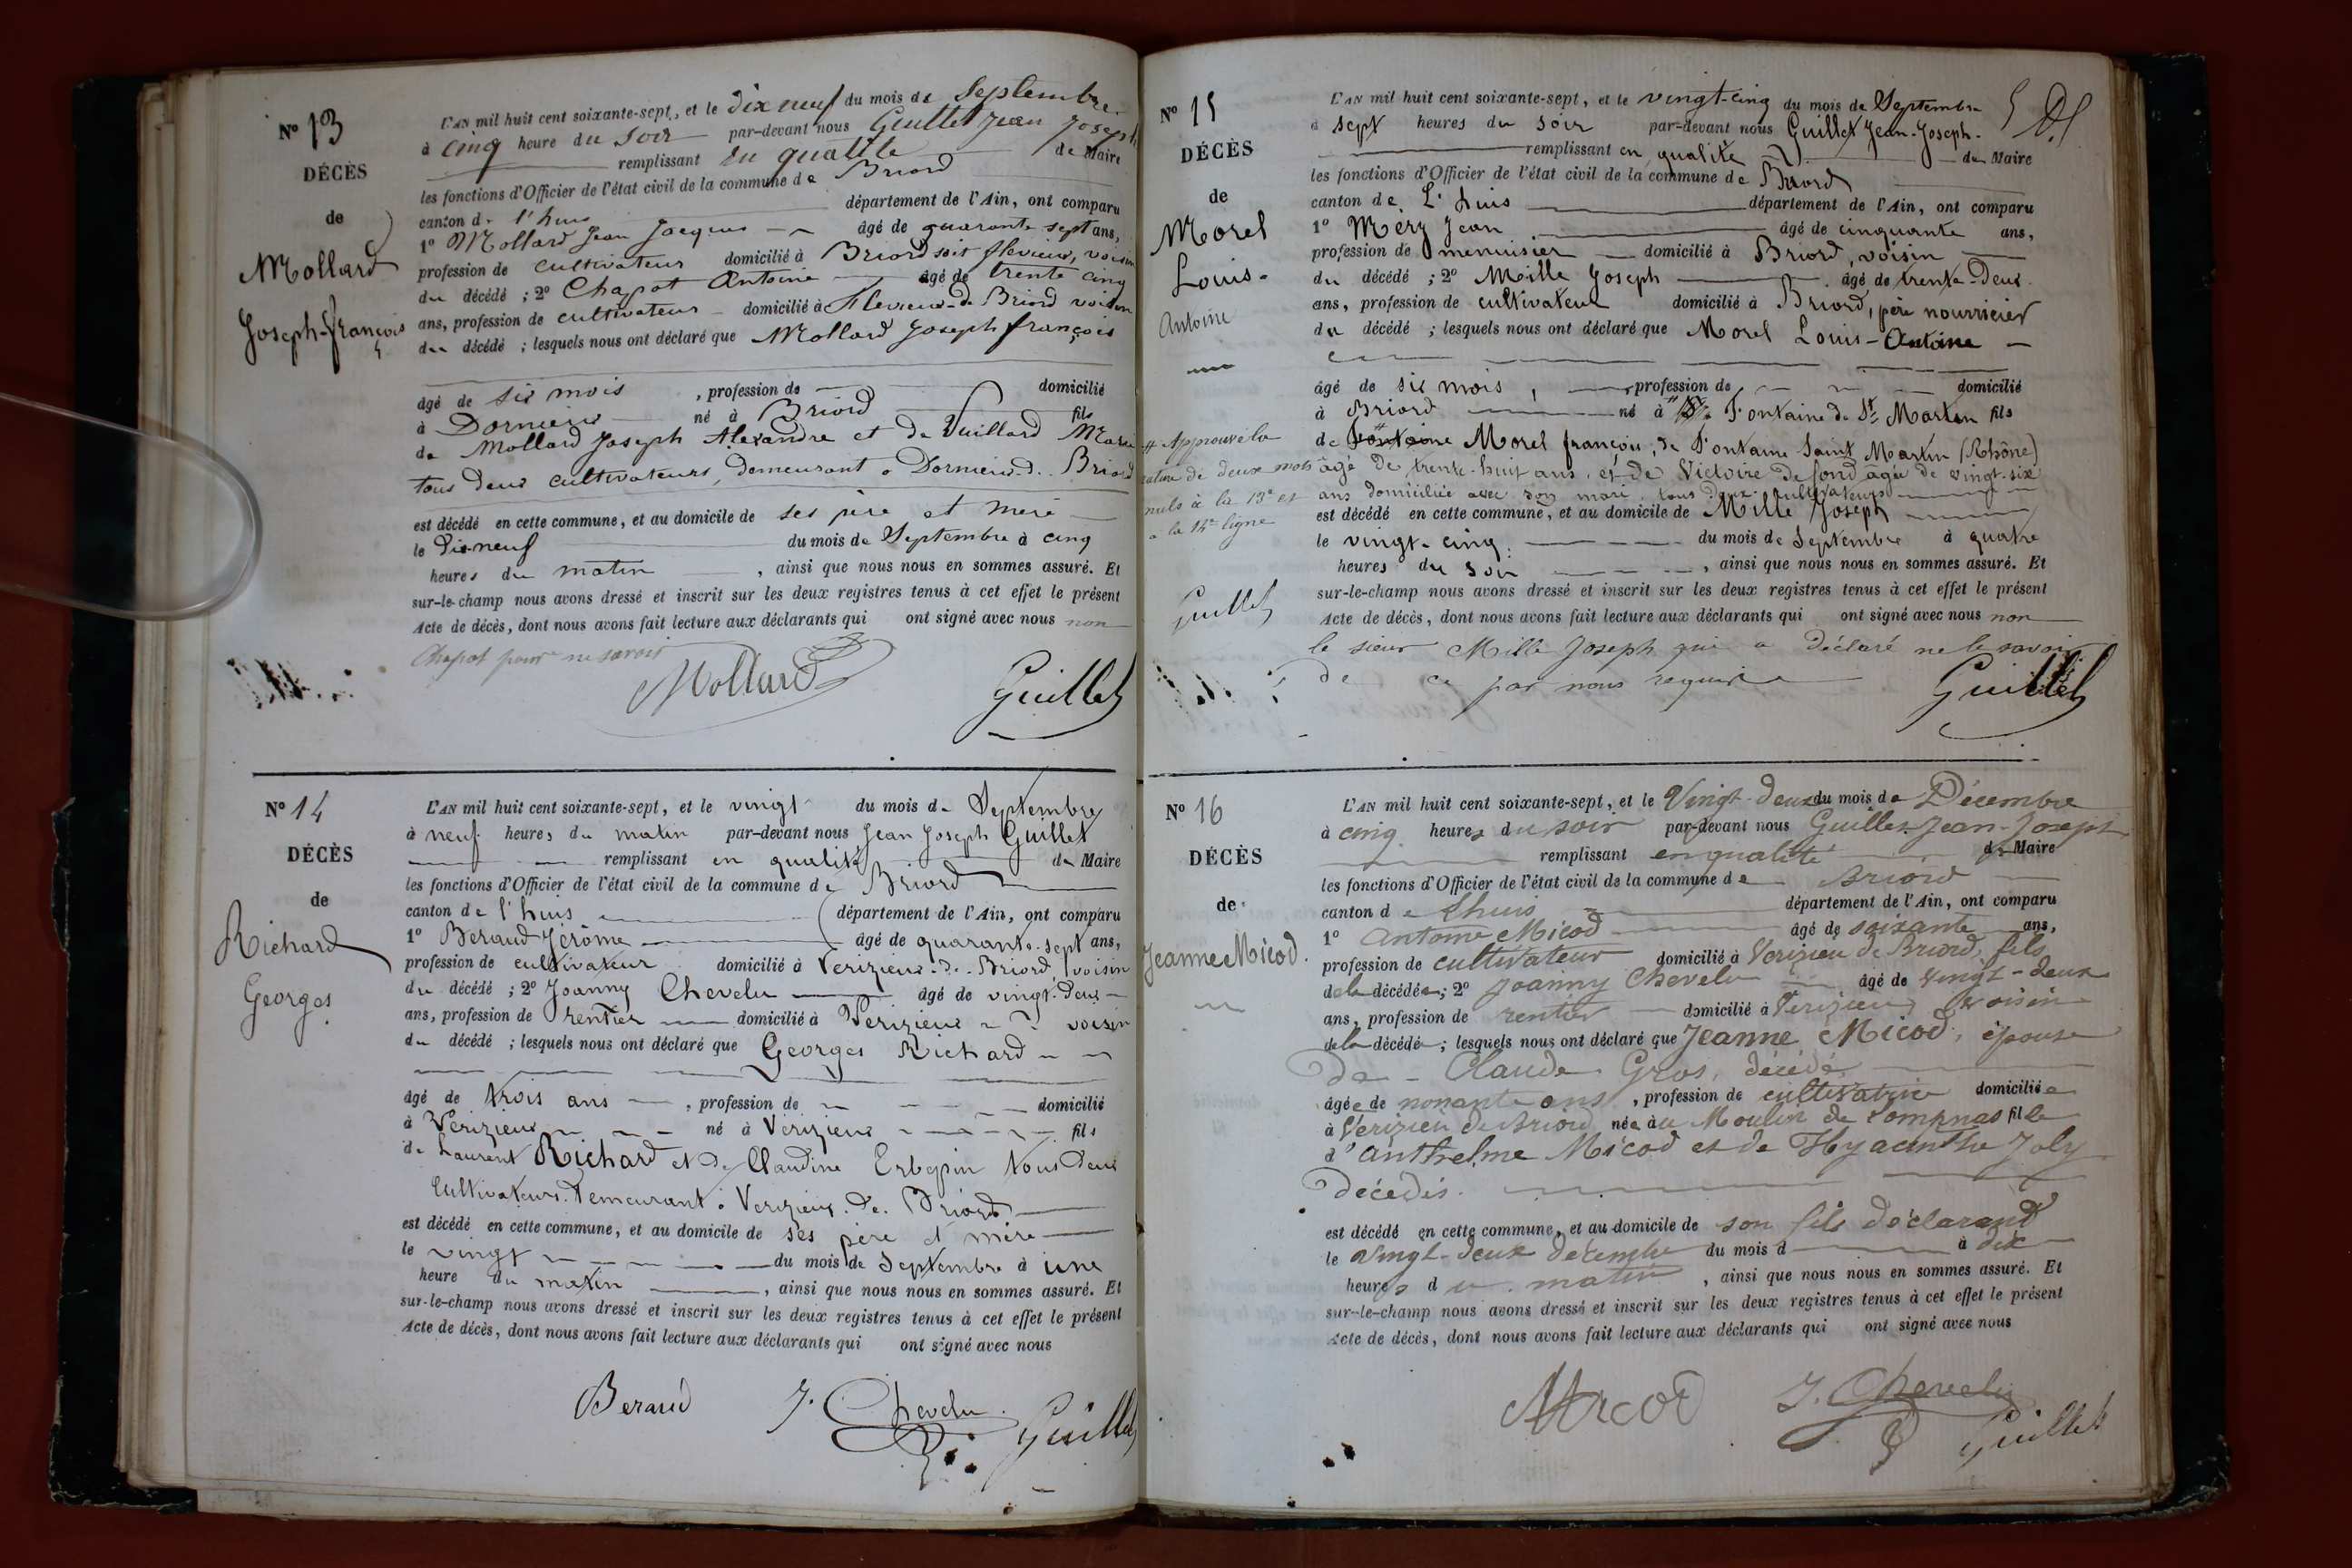 N° 13
DÉCÈS
de
Mollard
Joseph-françois
L'AN mil huit cent soixante-sept, et le dix neuf du mois de Septembre
à cinq heure du soir par-devant nous Guillet Jean Joseph
remplissant en qualité de Maire
les fonctions d'Officier de l'état civil de la commune de Briord
canton de l'huis département de l'Ain, ont comparu
1° Mollard Jean Jacques âgé de quarante sept ans,
profession de cultivateur domicilié à Briord soit flevieux, voisin
du décédé ; 2° Chapot Antoine âgé de trente cinq
ans, profession de cultivateur domicilié à Flevieux-de Briord voisin
du décédé ; lesquels nous ont déclaré que Mollard Joseph françois
âgé de six mois , profession de domicilié
à Dornieux né à Briord fils
de Mollard Joseph Alexandre et de Vuillard Marie
tous deux cultivateurs, demeurant à Dornieux-de Briord
est décédé en cette commune, et au domicile de ses père et mère
le dix-neuf du mois de Septembre à cinq
heures du matin , ainsi que nous nous en sommes assuré. Et
sur-le-champ nous avons dressé et inscrit sur les deux registres tenus à cet effet le présent
Acte de décès, dont nous avons fait lecture aux déclarants qui ont signé avec nous non
Chapot pour ne savoir
Mollard Guillet
N° 14
DÉCÈS
de
Richard
Georges
L'AN mil huit cent soixante-sept, et le vingt du mois de Septembre
à neuf heures du matin par-devant nous Jean Joseph Guillet
remplissant en qualité de Maire
les fonctions d'Officier de l'état civil de la commune de Briord
canton de l'huis département de l'Ain, ont comparu
1° Beraud Jérôme âgé de quarante-sept ans,
profession de cultivateur domicilié à Verizieux-de-Briord, voisin
du décédé ; 2° Joanny Chevelu âgé de vingt-deux
ans, profession de rentier domicilié à Verizieux voisin
du décédé ; lesquels nous ont déclaré que Georges Richard
âgé de trois ans , profession de domicilié
à Verizieux né à Verizieux fils
de Laurent Richard et de Claudine Erbepin tous deux
cultivateurs demeurant à Verizieux. de. Briord
est décédé en cette commune, et au domicile de ses père et mère
le vingt du mois de Septembre à une
heure du matin , ainsi que nous nous en sommes assuré. Et
sur-le-champ nous avons dressé et inscrit sur les deux registres tenus à cet effet le présent
Acte de décès, dont nous avons fait lecture aux déclarants qui ont signé avec nous
Beraud J. Chevelu Guillet
N° 15
DÉCÈS
de
Morel
Louis-
Antoine
Approuvé la
rature de deux mots
nuls à la 13e et
à la 14e ligne
Guillet
L'AN mil huit cent soixante-sept, et le vingt-cinq du mois de Septembre
à sept heures du soir par-devant nous Guillet Jean-Joseph-
remplissant en qualité de Maire
les fonctions d'Officier de l'état civil de la commune de Briord
canton de L'huis département de l'Ain, ont comparu
1° Méry Jean âgé de cinquante ans,
profession de menuisier domicilié à Briord, voisin
du décédé ; 2° Mille Joseph âgé de trente-deux
ans, profession de cultivateur domicilié à Briord, père nourricier
du décédé ; lesquels nous ont déclaré que Morel Louis-Antoine
âgé de six mois, profession de domicilié
à Briord né à Fontaine de St Martin fils
de Fontaine Morel françois, de Fontaine Saint Martin (Rhône)
âgé de trente-huit ans, et de Victoire Defond âgée de vingt-six
ans domiciliée avec son mari, tous deux cultivateurs
est décédé en cette commune, et au domicile de Mille Joseph
le vingt-cinq du mois de Septembre à quatre
heures du soir , ainsi que nous nous en sommes assuré. Et
sur-le-champ nous avons dressé et inscrit sur les deux registres tenus à cet effet le présent
Acte de décès, dont nous avons fait lecture aux déclarants qui ont signé avec nous non
le sieur Mille Joseph qui a déclaré ne le savoir
de ce par nous requis
Guillet
N° 16
DÉCÈS
de
Jeanne Micod.
L'AN mil huit cent soixante-sept, et le Vingt-deux du mois de Décembre
à cinq heures du soir par-devant nous Guillet Jean-Joseph
remplissant en qualité de Maire
les fonctions d'Officier de l'état civil de la commune de Briord
canton de Lhuis département de l'Ain, ont comparu
1° Antoine Micod âgé de soixante ans,
profession de cultivateur domicilié à Verizieu de Briord, fils
de la décédée ; 2° Joanny Chevelu âgé de vingt-deux
ans, profession de rentier domicilié à Verizieu, voisin
de la décédée ; lesquels nous ont déclaré que Jeanne Micod, épouse
de Claude Gros, décédé,
âgée de nonante ans , profession de cultivatrice domiciliée
à Vérizieu de Briord née au Moulin de Lompnas fille
d'Anthelme Micod et de Hyacinthe Joly
décédés.
est décédé en cette commune, et au domicile de son fils déclarand
le Vingt-deux décembre du mois d à dix
heures du matin , ainsi que nous nous en sommes assuré. Et
sur-le-champ nous avons dressé et inscrit sur les deux registres tenus à cet effet le présent
Acte de décès, dont nous avons fait lecture aux déclarants qui ont signé avec nous
Micod J. Chevelu
Guillet